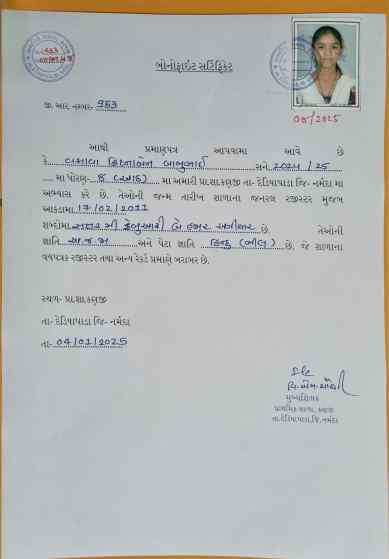 બોનોફાઇટ સર્ટિફિકેટ
જી.આર.નમ્બર- 953
05/2025
આથી પ્રમાણપત્ર આપવામા આવે છે
કે વસાવા ક્રિષ્નાબેન બાબુભાઇ સને 2024/25
મા ધોરણ- 8 (આઠ) મા અમારી પ્રા.શા.કણજી તા- દેડિયાપાડા જિ- નર્મદા મા
અભ્યાસ કરે છે. તેઓની જન્મ તારીખ શાળાના જનરલ રજીસ્ટર મુજબ
આંકડામા 17/02/2011
શબ્દોમા સત્તર મી ફેબ્રુઆરી બે હજાર અગીયાર છે. તેઓની
જ્ઞાતિ અ.જ.જા અને પેટા જ્ઞાતિ હિન્દુ (ભીલ) છે. જે શાળાના
વયપત્રક રજીસ્ટર તથા અન્ય રેકર્ડ પ્રમાણે બરાબર છે.
સ્થળ- પ્રા.શા.કણજી
તા- દેડિયાપાડા જિ- નર્મદા
તા- 04/01/2025
મુખ્યશિક્ષક
પ્રાથમિક શાળા, કણજી
તા.દેડિયાપાડા,જિ.નર્મદા